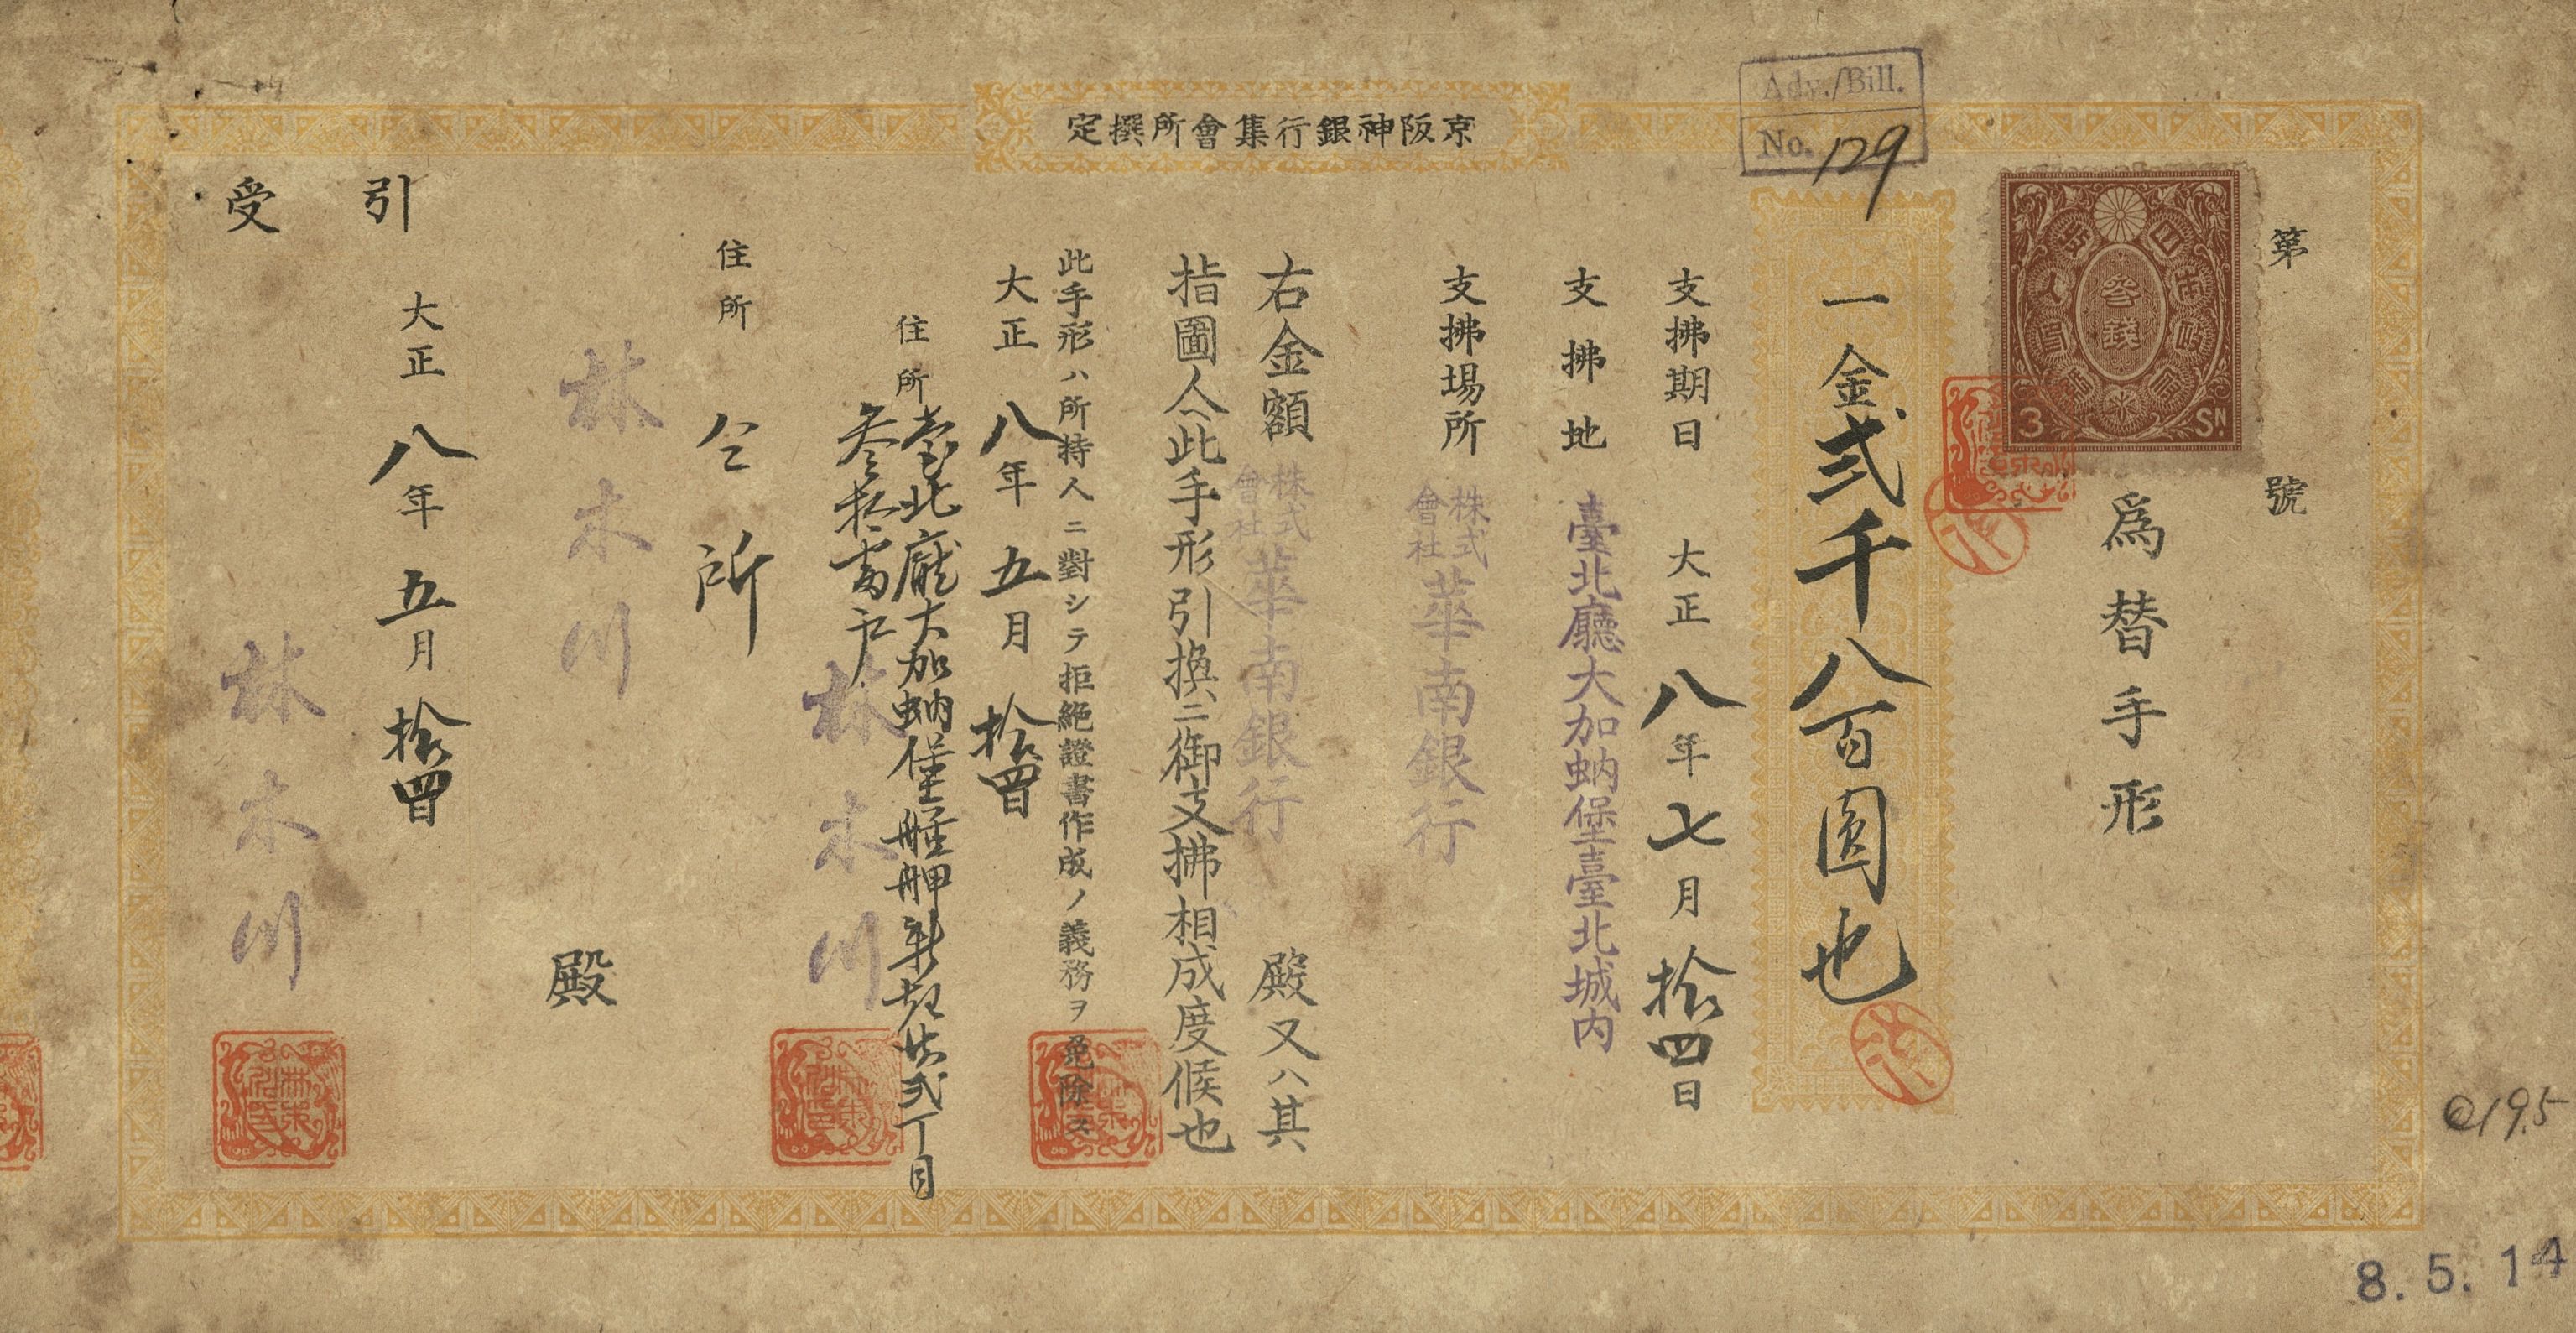 京阪神銀行集會所撰定
Adv./Bill.
No. 129
第 號
3 SN.
參錢
爲替手形
一金貳千八百圓也
支拂期日 大正八年七月拾四日
支拂地 臺北廳大加蚋堡臺北城内
支拂場所 株式會社華南銀行
右金額 株式會社華南銀行 殿又ハ其
指圖人へ此手形引換ニ御支拂相成度候也
此手形ハ所持人ニ對シテ拒絶證書作成ノ義務ヲ免除ス
大正八年五月拾四日
住所 臺北廳大加蚋堡艋舺新起街貳丁目
參拾番戶
林木川
住所 仝所
林木川 殿
引受
大正八年五月拾四日
林木川
@19.5
8.5.14